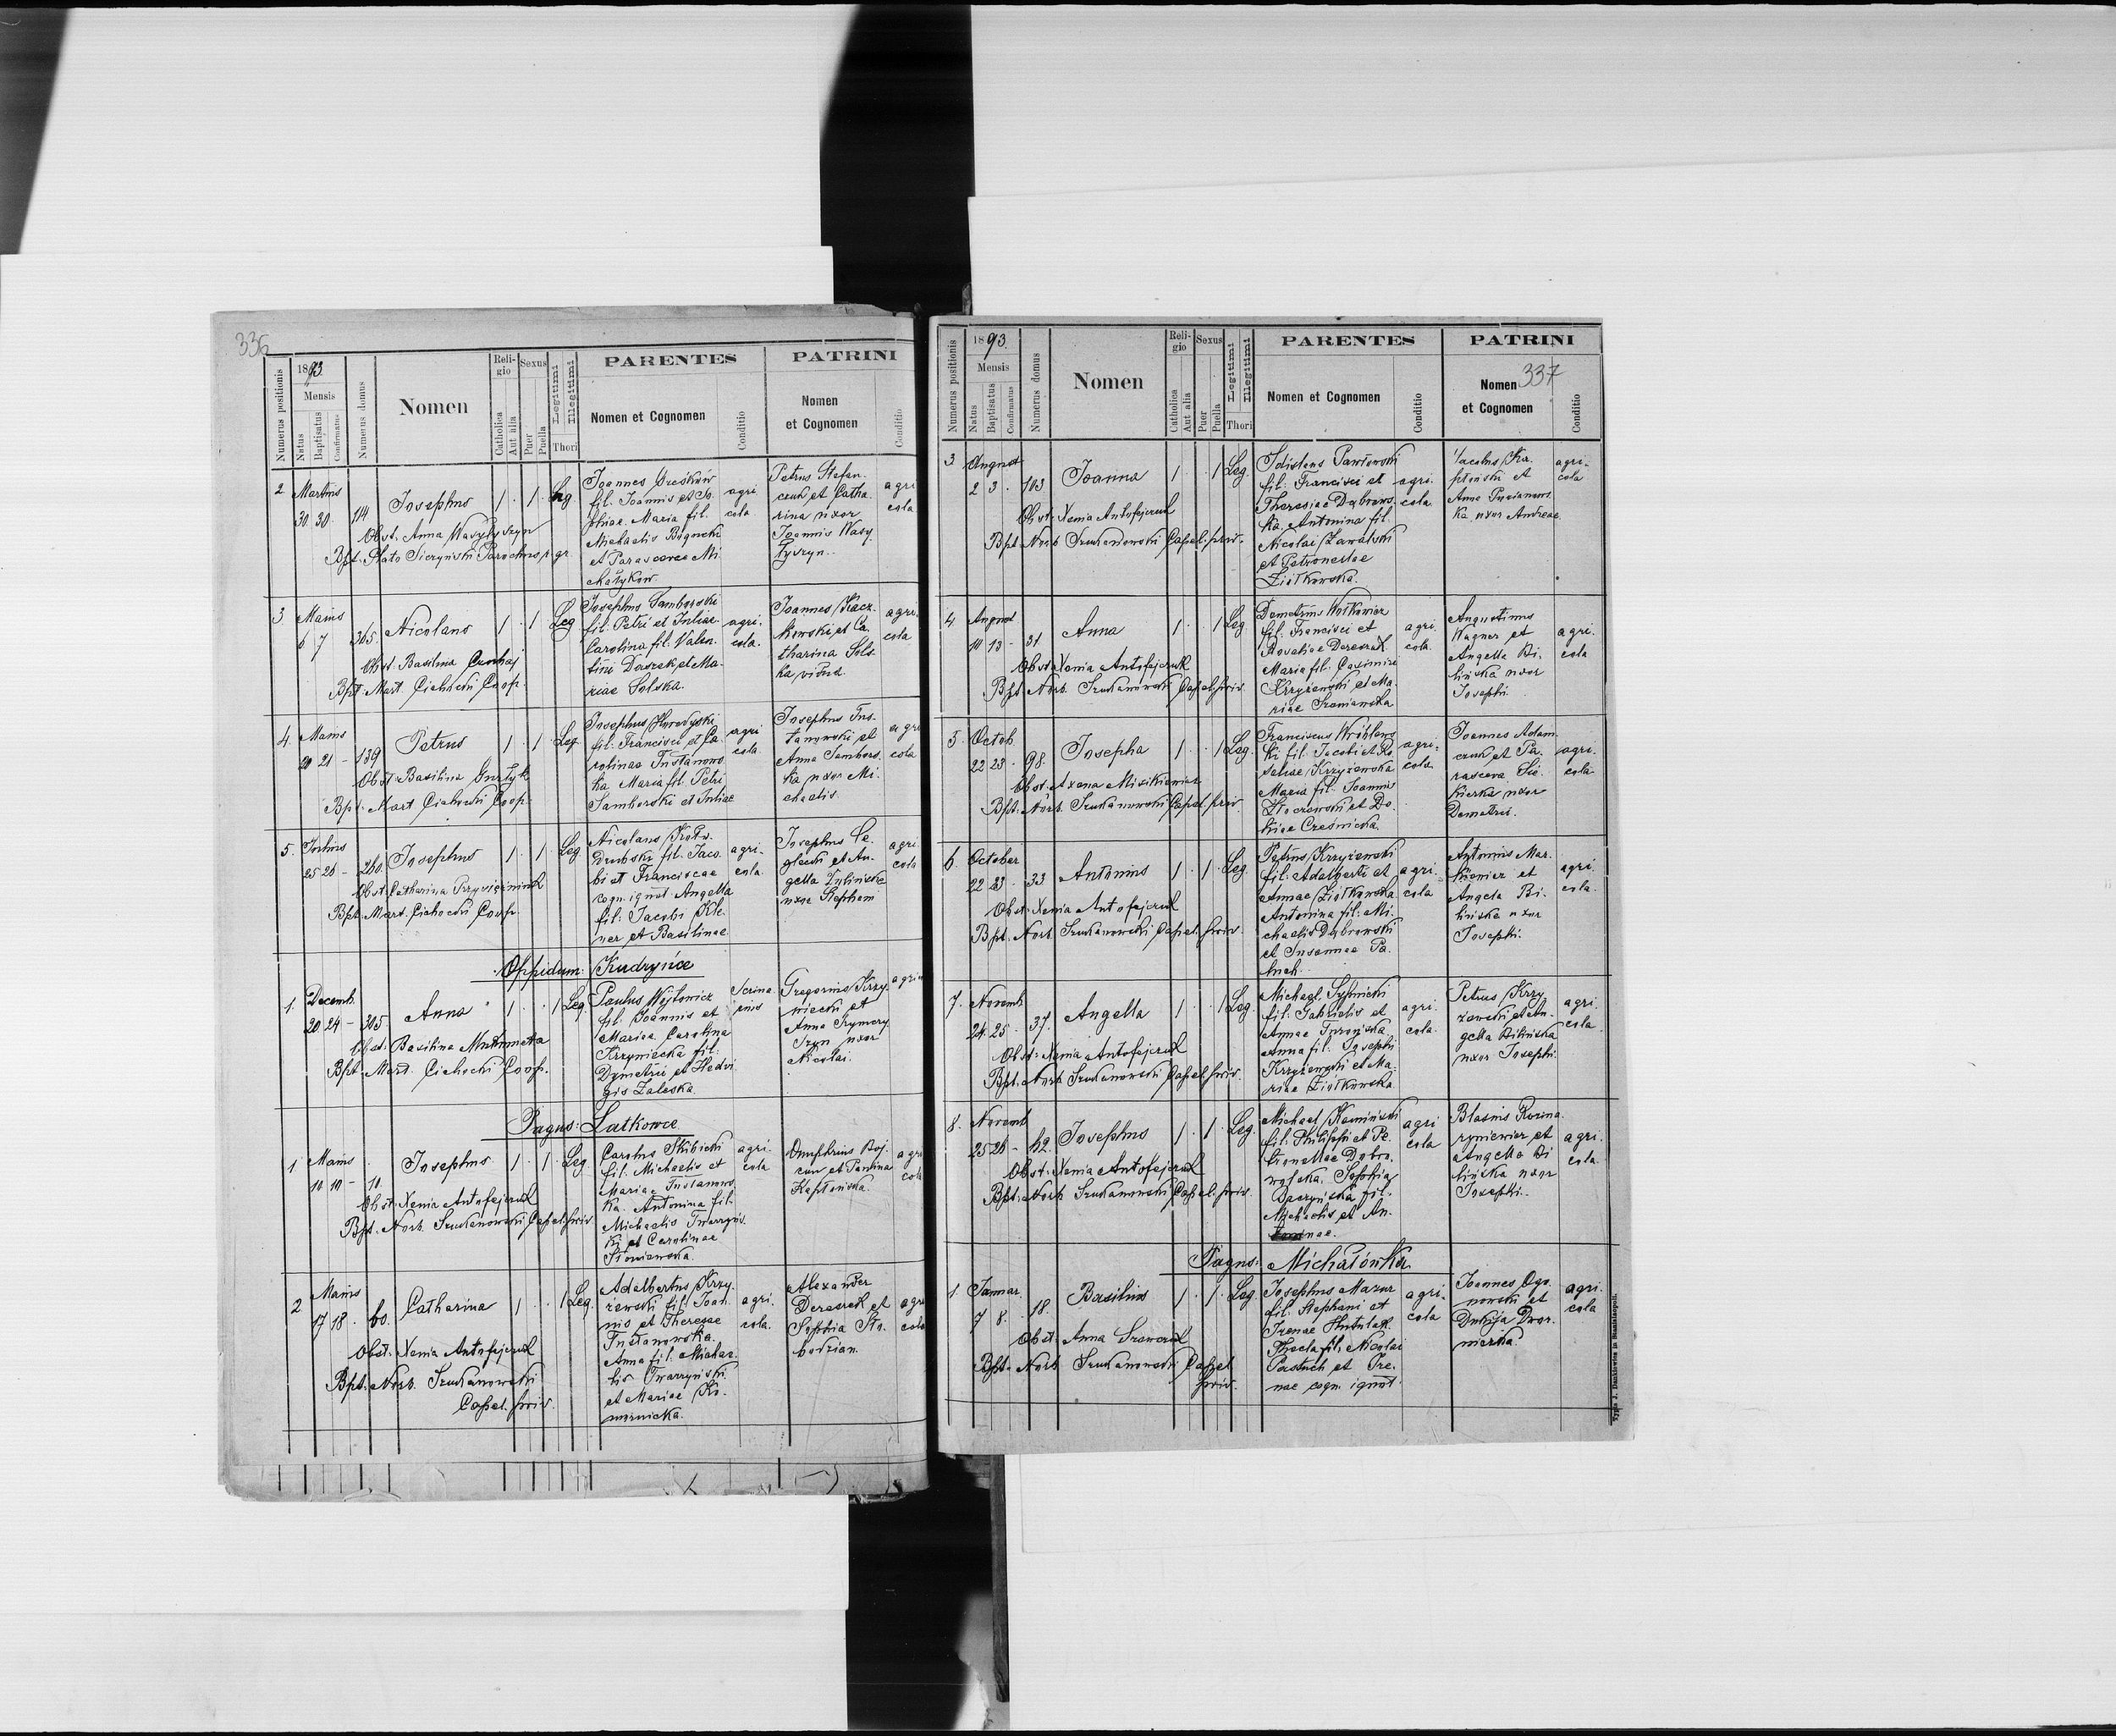 336
Numerus positionis
1893
Mensis
Natus
Baptisatus
Confirmatus
Numerus domus
Nomen
Religio
Catholica
Aut alia
Sexus
Puer
Puella
Legitimi
Illegitimi
Thori
PARENTES
Nomen et Cognomen
Conditio
PATRINI
Nomen
et Cognomen
Conditio
2 Martius 30 30 114 Josephus 1 1 Leg.
Obst. Anna Wasylyszyn
Bpt. Plato Sieczyński Parochus r. gr.
Joannes
fil. Joannis et So-
phiae. Maria fil.
Michaelis
et Parascevae Mi-
chałyków
agri
cola
Petrus Stefan-
czuk et Catha-
rina uxor
Joannis Wasy-
łyszyn.
agri
cola
3 Maius 6 7 365 Nicolaus 1 1 Leg
Obst. Basilina
Bpt. Mart. Cichocki Coop.
Josephus Samborski
fil. Petri et Juliae
Carolina fil. Valen-
tini Daszek et Ma-
riae Solska.
agri.
cola.
Joannes Kacz-
kowski et Ca-
tharina Sols-
ka vidua.
agri.
cola
4. Maius 20 21 - 139 Petrus 1 1 Leg.
Obst. Basilina Guzłyk
Bpt. Mart. Cichocki Coop.
Josephus Horodyski
fil. Francisci et Ca-
rolinae Tustanows-
ka Maria fil. Petri
Samborski et Juliae
agri
cola
Josephus Tus-
tanowski et
Anna Sambors-
ka uxor Mi-
chaelis.
agri
cola
5. Julius 25 26 - 260. Josephus 1. 1. Leg
Obst. Catharina
Bpt. Mart. Cichocki Coop.
Nicolaus
fil. Jaco-
bi et Franciscae
cogn. ignot Angella
fil. Jacobi Kle-
ner et Basilinae
agri-
cola.
Josephus Ce-
glecki et An-
gella Zylińska
uxor Stephani
agri
cola
Oppidum: Kudryńce
1. Decemb. 20 24 - 305 Anna 1. 1 Leg.
Obst. Basilina
Bpt. Mart. Cichocki Coop.
Paulus Wójtowicz
fil. Joannis et
Mariae Carolina
Krzyniecka fil.
Dymetrii et Hedvi-
gis Zaleska.
Gregorius Krzy-
niecki et
Anna
uxor
Nicolai.
Pagus: Latkowce
1 Maius 10 10 - 10. Josephus 1 1 Leg.
Obst. Xenia Antofijczuk
Bpt. Norb. Szukanowski Capel. priv.
Carolus Skibicki
fil. Michaelis et
Mariae Tustanows-
ka. Antonina fil.
Michaelis Twarzyńs-
ki et Carolinae
Słoniewska.
agri-
cola
Onuphrius Boj-
czuk et Paulina
Kapłońska.
agri
cola
2 Maius 17 18. 60. Catharina 1 1 Leg.
Obst. Xenia Antofijczuk
Bpt. Norb. Szukanowski
Capel. priv.
Adalbertus Krzy-
żewski fil. Joan-
nis et Theresae
Tustanowska.
Anna fil. Michae-
lis Twarzyński
et Mariae Ko-
mirnicka.
agri.
cola.
Alexander
Deraszek et
Sophia Sło-
bodzian.
agri
cola
Numerus positionis
1893
Mensis
Natus
Baptisatus
Confirmatus
Numerus domus
Nomen
Religio
Catholica
Aut alia
Sexus
Puer
Puella
Legitimi
Illegitimi
Thori
PARENTES
Nomen et Cognomen
Conditio
PATRINI
337
Nomen
et Cognomen
Conditio
3 August 2 3. 103 Joanna 1. 1 Leg.
Obst. Xenia Antofijczuk
Bpt. Norb Szukanowski Capel. priv.
Pawłowski
fil. Francisci et
Theresiae Dąbrows-
ka. Antonina fil.
Nicolai Zawalski
et Petronellae
Ziółkowska.
agri.
cola.
Jacobus Ka-
płoński et
Anna
uxor Andreae.
agri-
cola
4. August 10 13 - 31 Anna 1. 1 Leg.
Obst. Xenia Antofijczuk
Bpt. Norb. Szukanowski Capel. priv.
Demetrius Wołkowicz
fil. Francisci et
Rosaliae Deraszek
Maria fil. Casimiri
Krzyżewski et Ma-
riae Szeniawska
agri
cola.
Augustinus
Wagner et
Angella Bi-
lińska uxor
Josephi.
agri.
cola
5. Octob. 22 23 - 98. Josepha 1 1 Leg.
Obst. Axena Misikiewicz
Bpt. Norb. Szukanowski Capel. priv.
Franciscus Wróblews-
ki fil. Jacobi et Ro-
saliae Krzyżewska
Maria fil. Joannis
et Do-
Cześnicka.
agri-
cola
Joannes Adam-
czuk et Pa-
rasceva Sie-
kierka uxor
Demetrii.
agri.
cola
6. October 22 23 - 33 Antonius 1 1. Leg.
Obst. Xenia Antofijczuk
Bpt. Norb. Szukanowski Capel. priv.
Petrus Krzyżewski
fil. Adalberti et
Annae Ziółkowska
Antonina fil. Mi-
chaelis Dąbrowski
et Susannae Pa-
luch.
agri.
cola
Antonius Mar-
kiewicz et
Angela Bi-
lińska uxor
Josephi.
agri.
cola.
7. Novemb. 24. 25 - 37. Angella 1. 1 Leg.
Obst. Xenia Antofijczuk
Bpt. Norb. Szukanowski Capel. priv.
Michael
fil. Gabrielis et
Annae
Anna fil. Josephi
Krzyżewski et Ma-
riae Ziółkowska
agri.
cola.
Petrus Krzy-
żewski et An-
gella Bilińska
uxor Josephi.
agri
cola.
8. Novemb 25 26 - 42. Josephus 1. 1. Leg.
Obst. Xenia Antofijczuk
Bpt. Norb Szukanowski Capel. priv.
Michael Kamiński
fil. Philippi et Pe-
tronellae Dobro-
wolska. Sophia
Baczyńska fil.
Michaelis et An-
nae.
agri
cola
Blasius
et
Angella Bi-
lińska uxor
Josephi.
agri.
cola
Pagus: Michałówka
1 Januar. 7 8. 18. Basilius 1. 1. Leg.
Obst. Anna Szewczuk
Bpt. Norb. Szukanowski Capel
priv.
Josephus Mazur
fil. Stephani et
Irenae Hutulak.
Thecla fil. Nicolai
Pastuch et Ire-
nae cogn. ignot.
agri-
cola
Joannes Ogo-
nowski et
Dwor-
nicka.
agri.
cola
Typis J. Dankiewicz in Stanislaopoli.